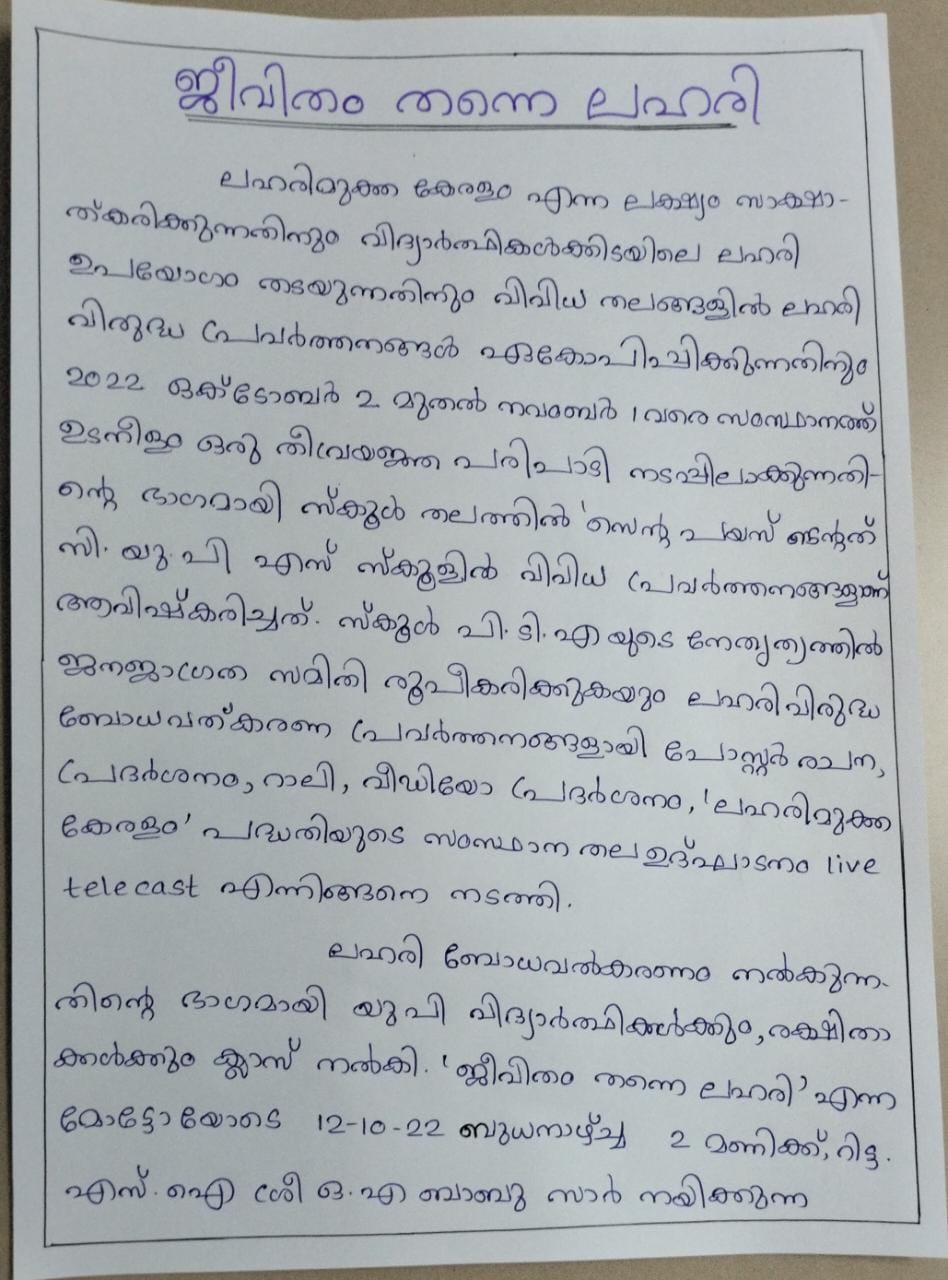 ജീവിതം തന്നെ ലഹരി
ലഹരിമുക്ത കേരളം എന്ന ലക്ഷ്യം സാക്ഷാ-
ത്കരിക്കുന്നതിനും വിദ്യാർത്ഥികൾക്കിടയിലെ ലഹരി
ഉപയോഗം തടയുന്നതിനും വിവിധ തലങ്ങളിൽ ലഹരി
വിരുദ്ധ പ്രവർത്തനങ്ങൾ ഏകോപിപ്പിക്കുന്നതിനും
2022 ഒക്ടോബർ 2 മുതൽ നവംബർ 1 വരെ സംസ്ഥാനത്ത്
ഉടനീളം ഒരു തീവ്രയജ്ഞ പരിപാടി നടപ്പിലാക്കുന്നതി-
ന്റെ ഭാഗമായി സ്കൂൾ തലത്തിൽ 'സെന്റ് പയസ് ടെൻത്
സി. യു. പി എസ് സ്കൂളിൽ വിവിധ പ്രവർത്തനങ്ങളാണ്
ആവിഷ്കരിച്ചത്. സ്കൂൾ പി. ടി. എ യുടെ നേതൃത്വത്തിൽ
ജനജാഗ്രത സമിതി രൂപീകരിക്കുകയും ലഹരിവിരുദ്ധ
ബോധവത്കരണ പ്രവർത്തനങ്ങളായി പോസ്റ്റർ രചന,
പ്രദർശനം, റാലി, വീഡിയോ പ്രദർശനം, 'ലഹരിമുക്ത
കേരളം' പദ്ധതിയുടെ സംസ്ഥാന തല ഉദ്ഘാടനം live
telecast എന്നിങ്ങനെ നടത്തി.
ലഹരി ബോധവൽകരണം നൽകുന്ന-
തിന്റെ ഭാഗമായി യു പി വിദ്യാർത്ഥികൾക്കും, രക്ഷിതാ
ക്കൾക്കും ക്ലാസ് നൽകി. 'ജീവിതം തന്നെ ലഹരി' എന്ന
മോട്ടോയോടെ 12-10-22 ബുധനാഴ്ച്ച 2 മണിക്ക്, റിട്ട.
എസ്. ഐ ശ്രീ ഒ. എ ബാബു സാർ നയിക്കുന്ന